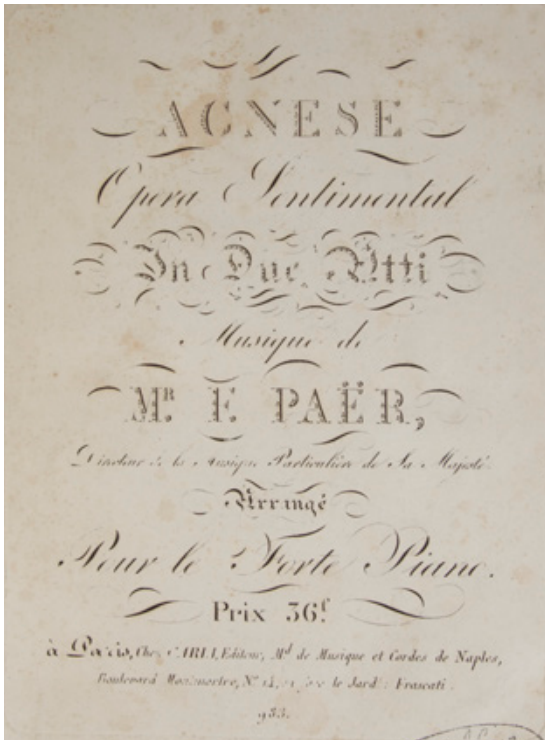 AGNESE
Opera Sentimental
In Due Atti
Musique de
Mr. F. PAËR,
Directeur de la Musique Particulière de Sa Majesté.
Arrangé
Pour le Forte Piano.
Prix 36f.
à Paris, Chez CARLI, Editeur, Md de Musique et Cordes de Naples,
Boulevard Montmartre, No. 14, en face le Jardin Frascati.
933.